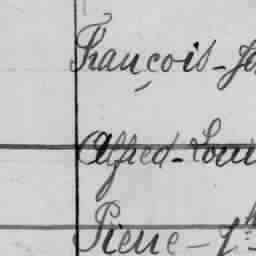 François-
Alfred-Loui
Pierre-